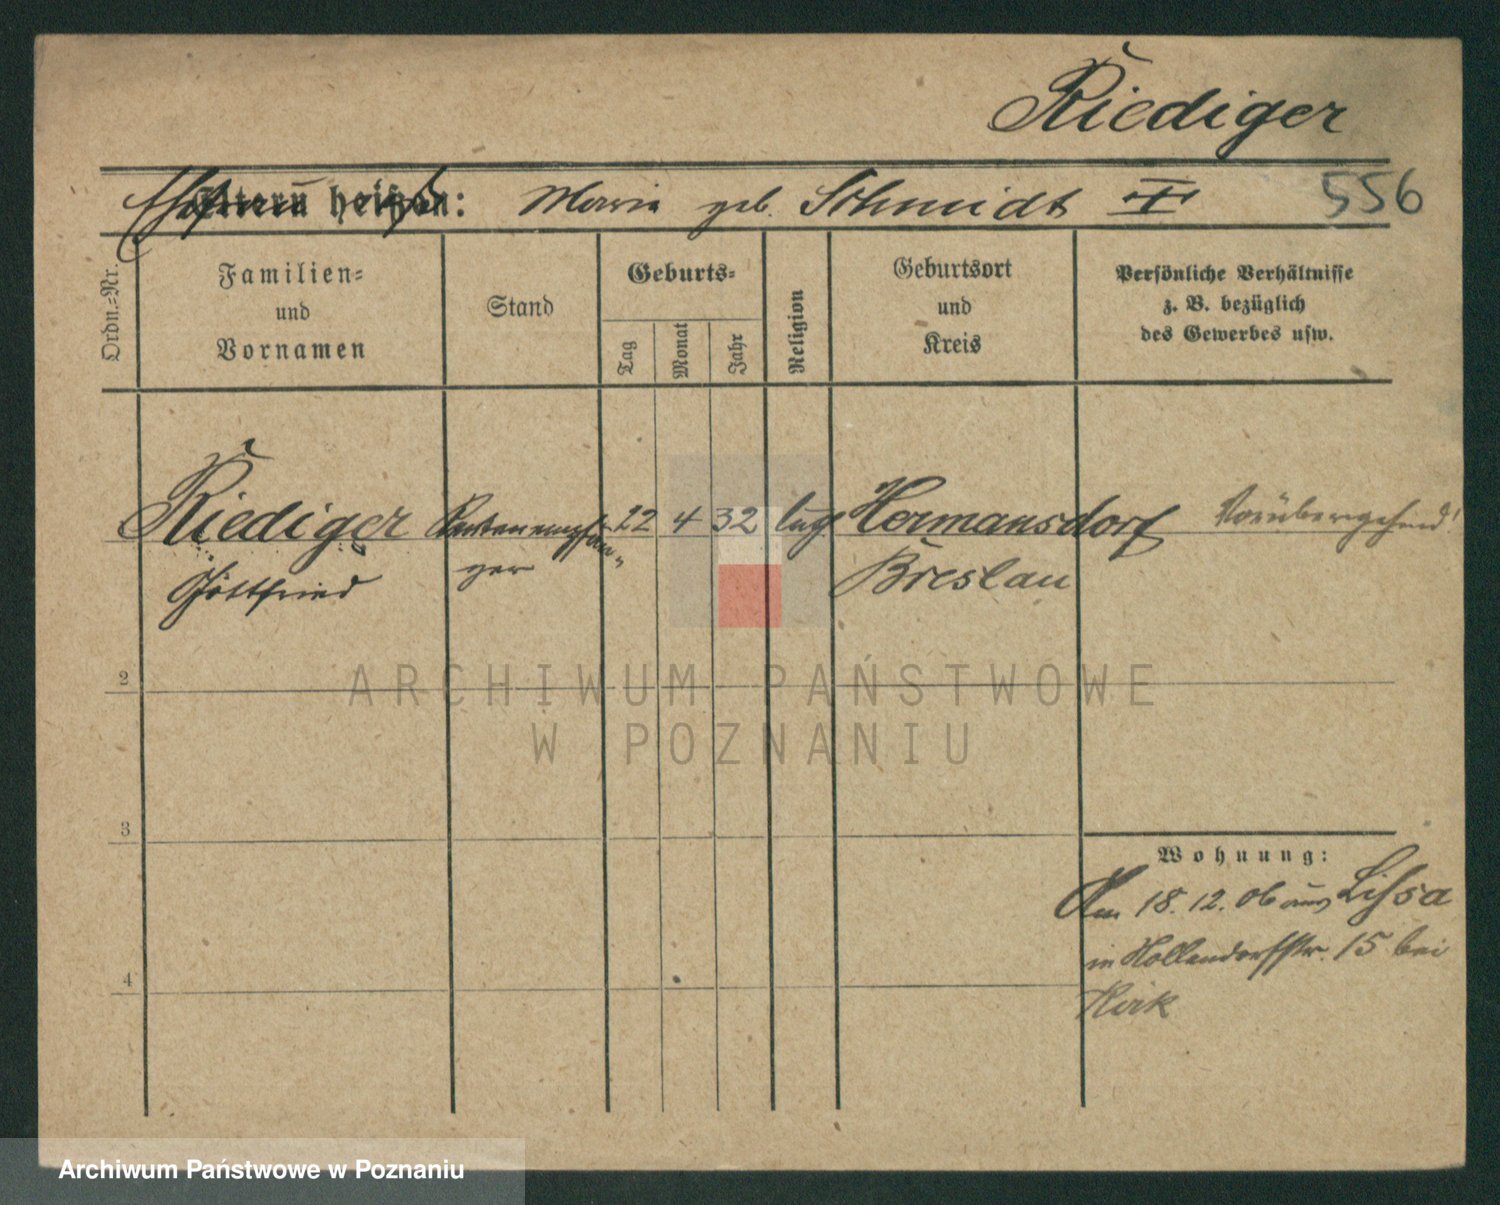 Riediger
Eltern heißen: Maria geb. Schmidt
556
Ordn.=Nr.
Familien=
und
Vornamen
Stand
Geburts=
Tag
Monat
Jahr
Religion
Geburtsort
und
Kreis
Persönliche Verhältnisse
z. B. bezüglich
des Gewerbes usw.
Riediger
Gottfried
Rentenempfän-
ger
22
4
32
Hermansdorf
Breslau
Vorübergehend!
2
3
4
Wohnung:
Am 18.12.06 aus Lissa
in Hollendorfstr. 15 bei
ARCHIWUM PAŃSTWOWE
W POZNANIU
Archiwum Państwowe w Poznaniu